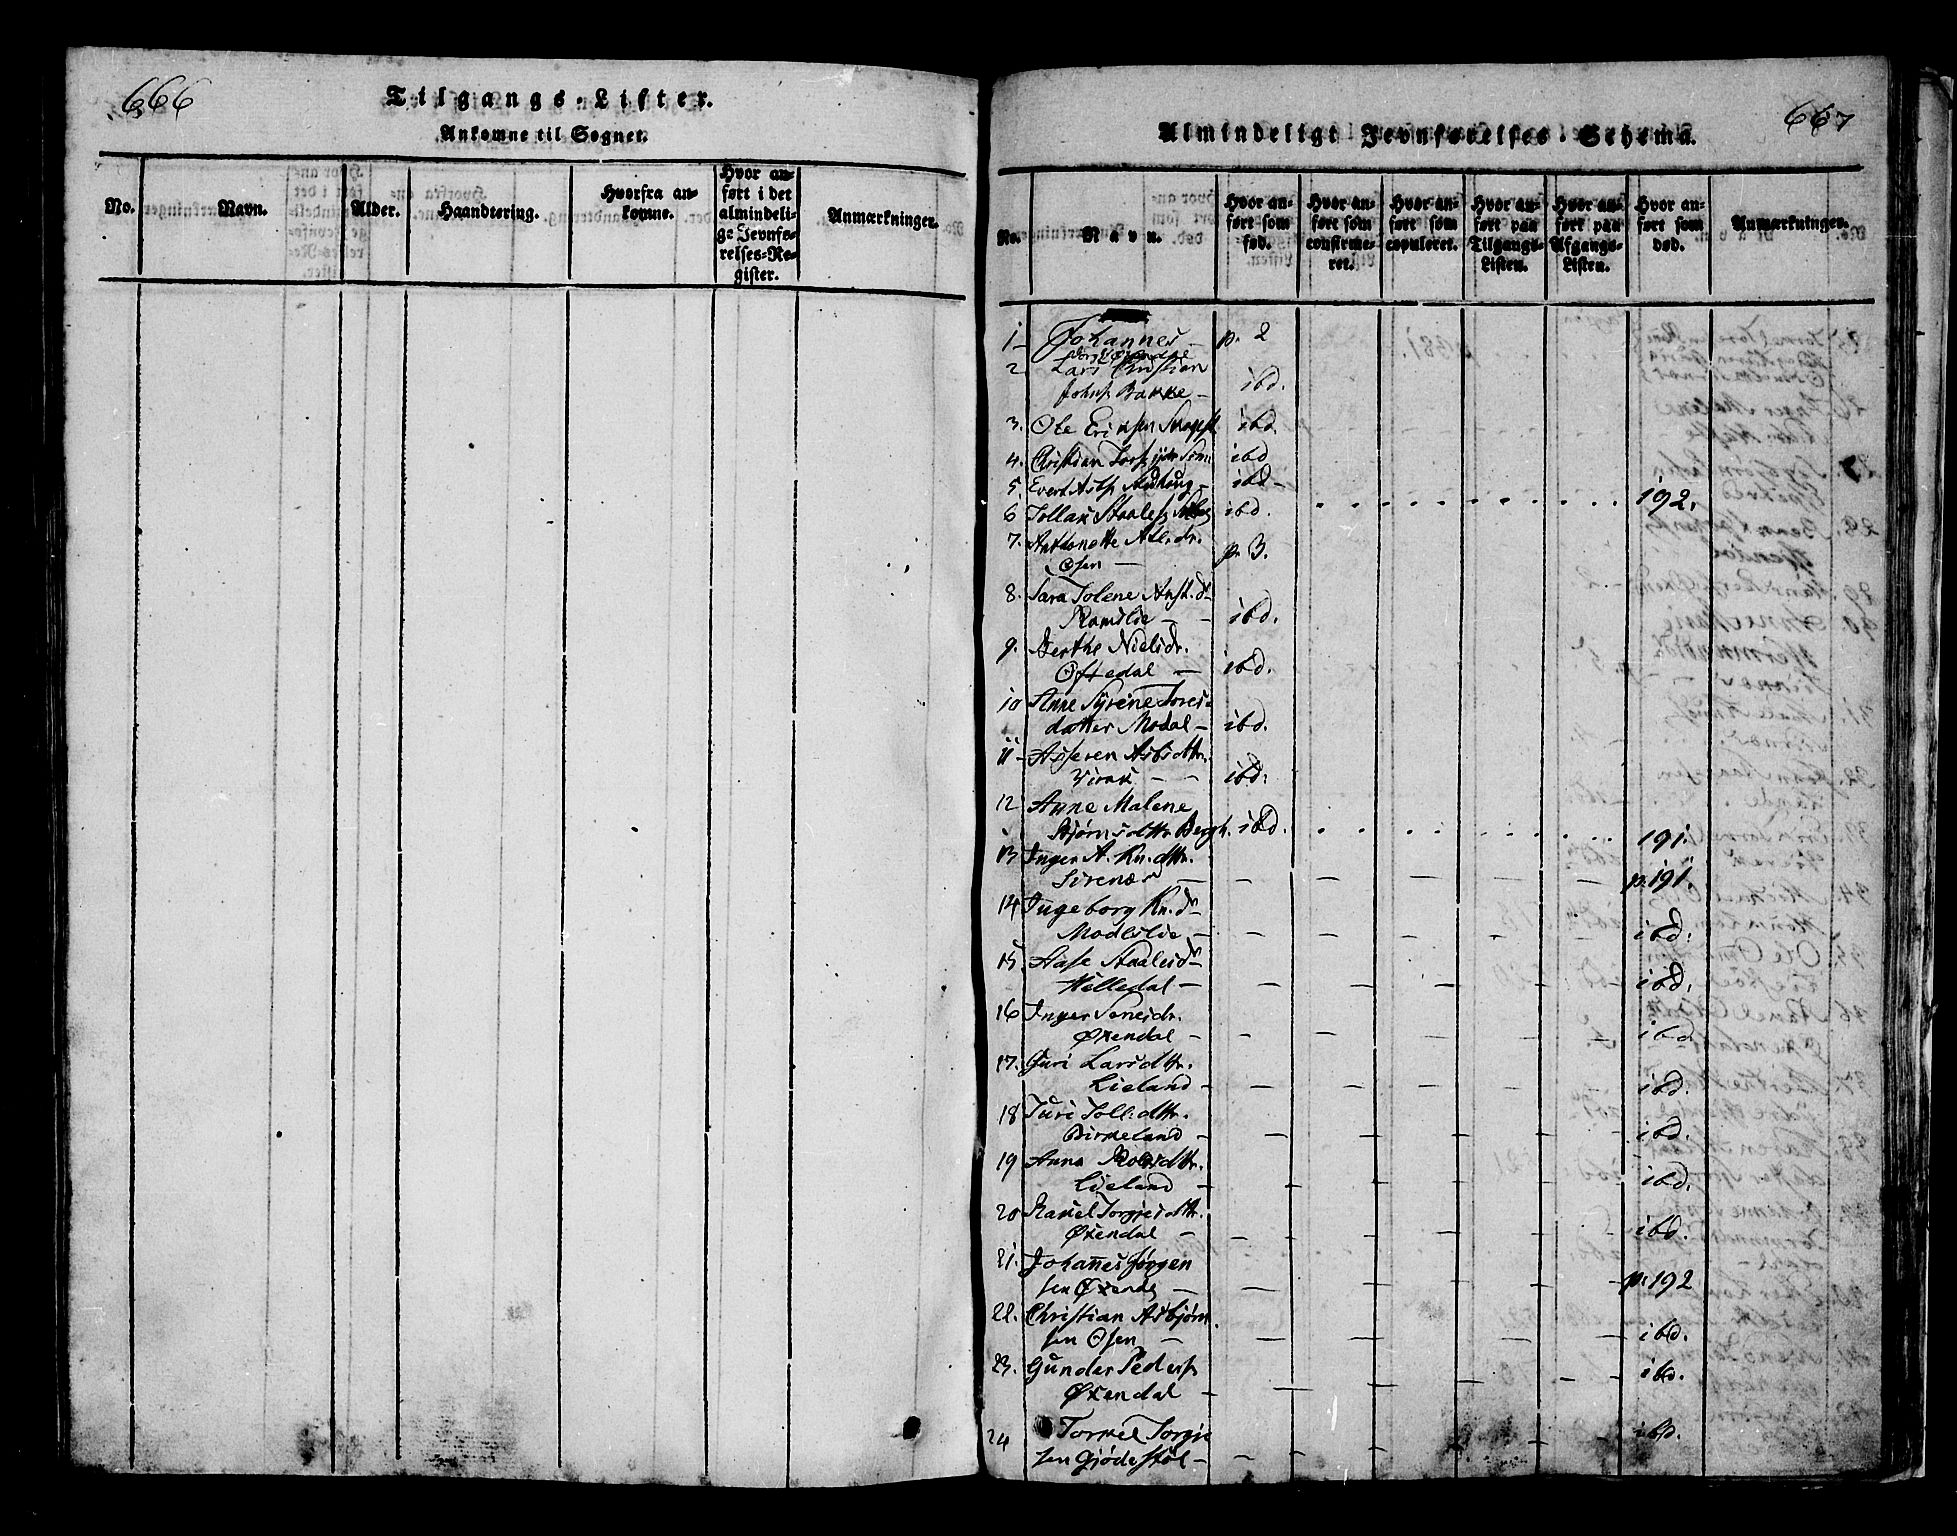 666
Tilgangs-Lister.
Ankomne til Sognet.
No.
Navn.
Alder.
Haandtering.
Hvorfra an-
komne.
Hvor an-
ført i det
almindeli-
ge Jevnfø-
relses-Re-
gister.
Anmærkninger.
667
Almindeligt Jevnførelses-Schema.
No.
Navn.
Hvor an-
ført som
fød.
Hvor an-
ført som
confirme-
ret.
Hvor an-
ført som
copuleret.
Hvor an-
ført paa
Tilgangs-
Listen.
Hvor an-
ført paa
Afgangs-
Listen.
Hvor an-
ført som
død.
Anmærkninger.
1 - Johannes - p. 2
2 Lars Christian
Johns. Bakke - ibd.
3. Ole Eriksen ibd.
4. Christian ibd
5. Evert ibd -
6 Tollak Staales. ibd. 192.
7. Anthonette Atl.dr.
Osen - p. 3.
8. Sara Tolene Anst.dr
Ramslie - - ibd.
9. Berthe Nielsdr.
Oftedal - ibd.
10 Anne Syrene Tores-
datter Modal - ibd.
11 - Asseren Asbsdttr.
Virak - - ibd.
12 Anne Malene
Bjørnsdttr. Bergh. ibd. 191.
13 Inger A. Kn.dttr.
Sirenæs - - - - - - p. 191.
14 Ingeborg Kn.dr
Modeslie - - - - - - ibd.
15 Aase Staalesdr
Helledal - - - - - - ibd.
16 Inger Senesdr.
Øxendal - - - - - - ibd
17. Guri Larsdttr.
Lieland - - - - - - ibd.
18 Turi Toll.dttr.
Birkeland - - - - - - ibd.
19 Anna Robsdttr.
Lieland - - - - - - ibd.
20 Rakel Torgjersdttr.
Øxendal - - - - - - ibd.
21. Johannes Jørgen
sen Øxend. - - - - - - p. 192
22. Christian Asbjørn
sen Osen - - - - - - ibd.
23. Gunder Peders.
Øxendal - - - - - - ibd.
24 Torkel Torgje
sen Gjødestøl - - - - - - ibd.